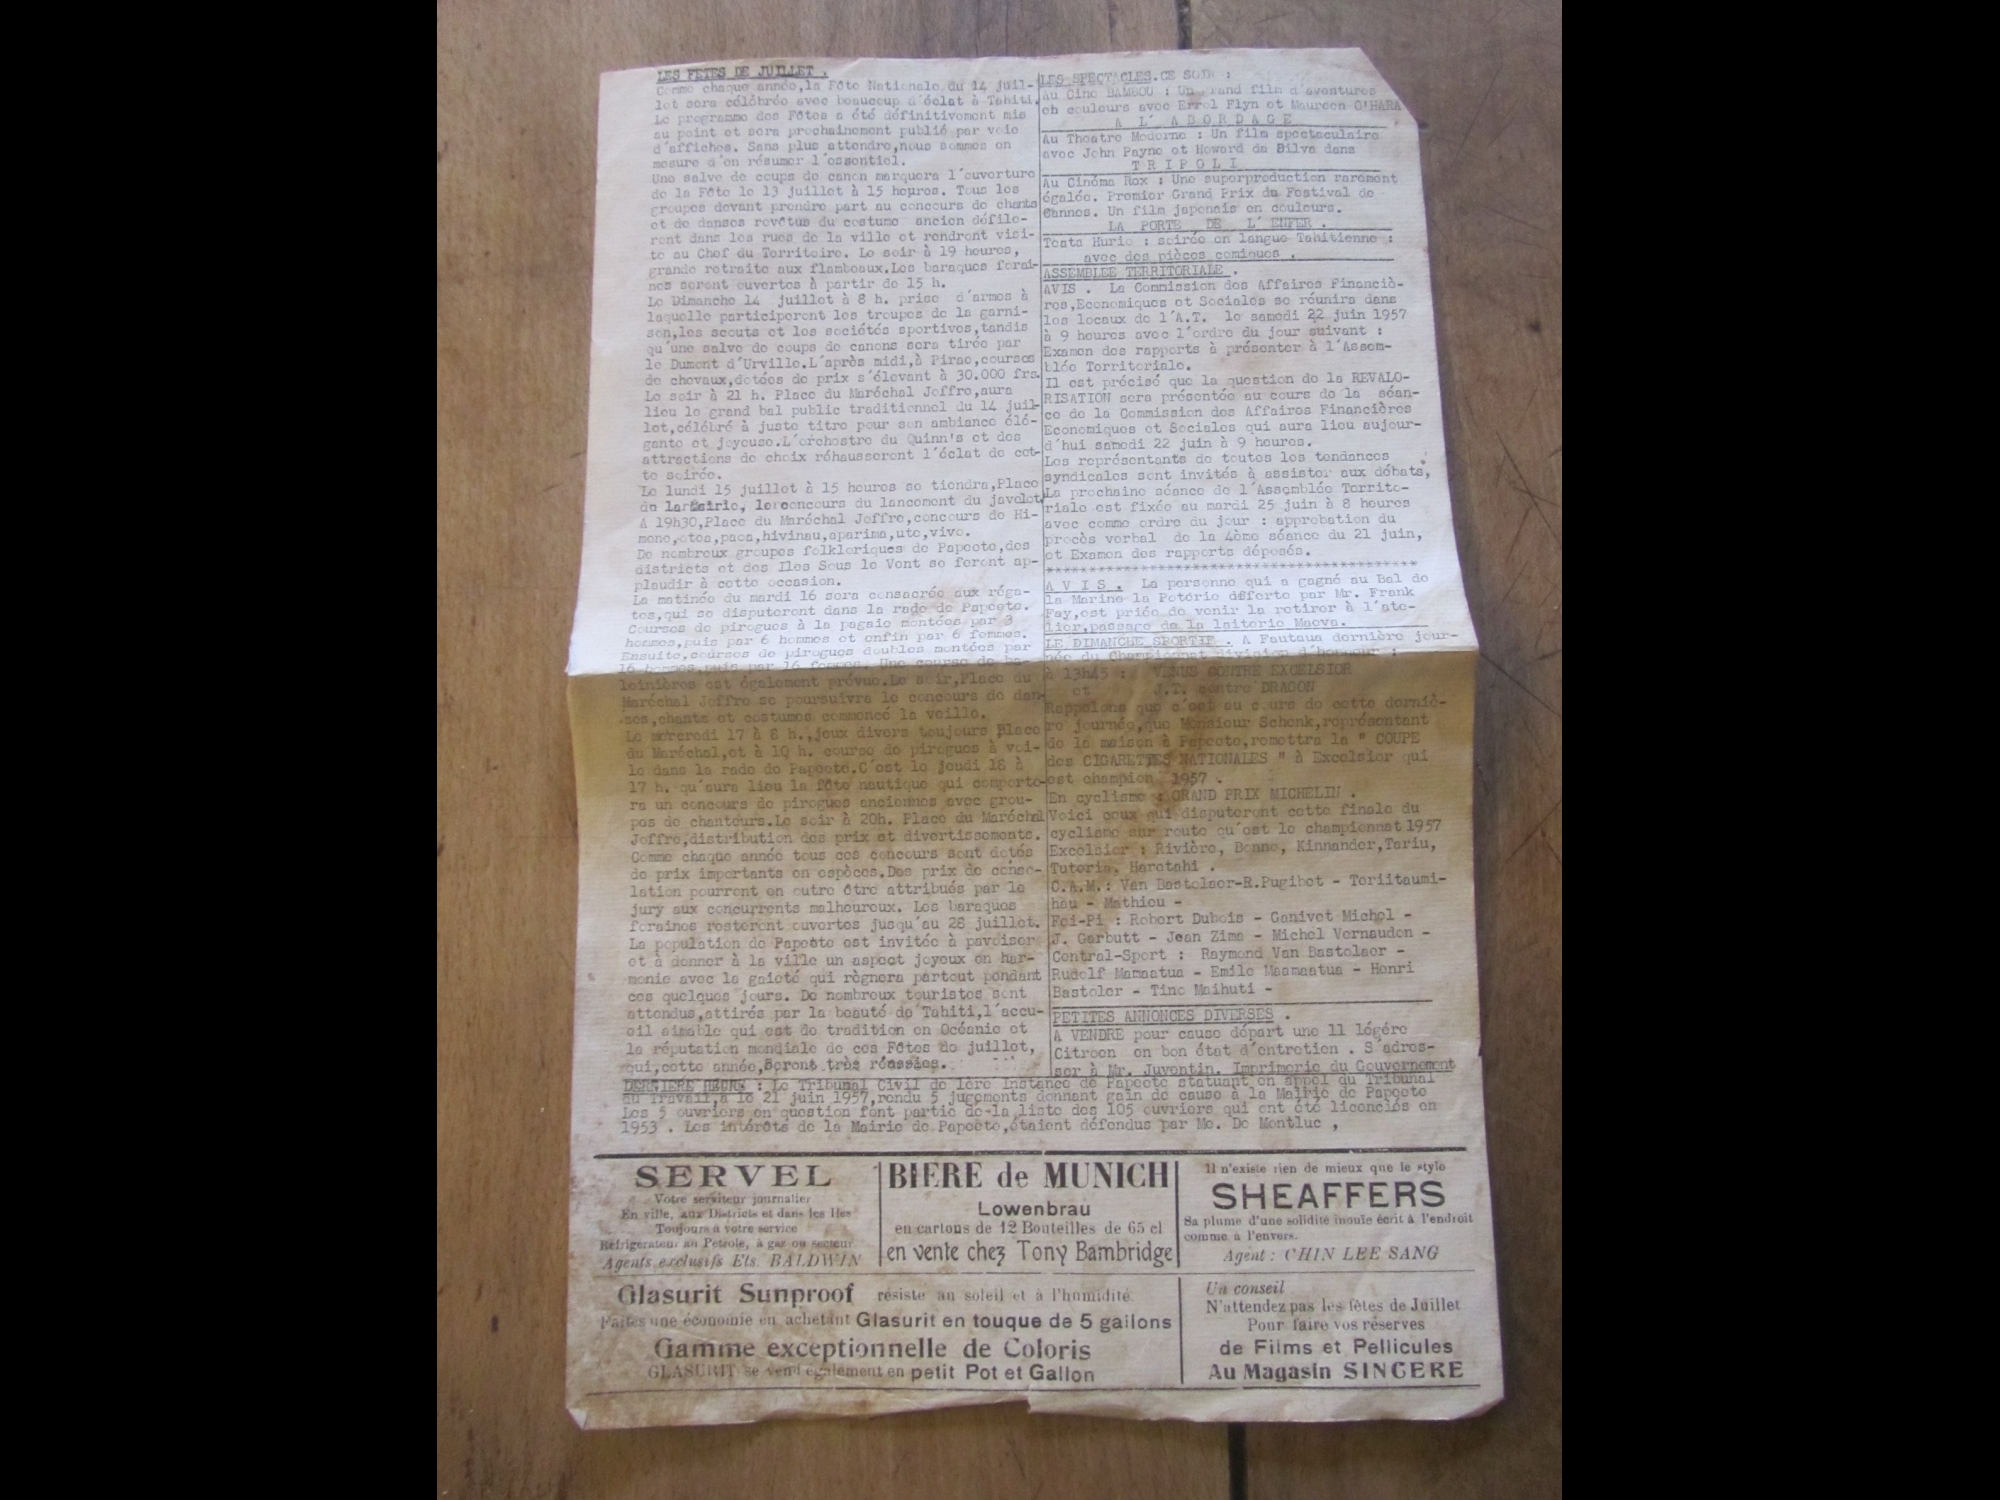 LES FETES DE JUILLET .
Comme chaque année,la Fête Nationale du 14 juil-
let sera célébrée avec beaucoup d'éclat à Tahiti.
Le programme des Fêtes a été définitivement mis
au point et sera prochainement publié par voie
d'affiches. Sans plus attendre,nous sommes en
mesure d'en résumer l'essentiel.
Une salve de coups de canon marquera l'ouverture
de la Fête le 13 juillet à 15 heures. Tous les
groupes devant prendre part au concours de chants
et de danses revêtus du costume ancien défile-
ront dans les rues de la ville et rendront visi-
te au Chef du Territoire. Le soir à 19 heures,
grande retraite aux flambeaux.Les baraques forai-
nes seront ouvertes à partir de 15 h.
Le Dimanche 14 juillet à 8 h. prise d'armes à
laquelle participeront les troupes de la garni-
son,les scouts et les sociétés sportives,tandis
qu'une salve de coups de canons sera tirée par
le Dumont d'Urville.L'après midi,à Pirae,courses
de chevaux,dotées de prix s'élevant à 30.000 frs.
Le soir à 21 h. Place du Maréchal Joffre,aura
lieu le grand bal public traditionnel du 14 juil-
let,célébré à juste titre pour son ambiance élé-
gante et joyeuse.L'orchestre du Quinn's et des
attractions de choix réhausseront l'éclat de cet-
te soirée.
Le lundi 15 juillet à 15 heures se tiendra,Place
de la Mairie, le concours du lancement du javelot
A 19h30,Place du Maréchal Joffre,concours de Hi-
mene,otea,paoa,hivinau,aparima,ute,vivo.
De nombreux groupes folkloriques de Papeete,des
districts et des Iles Sous le Vent se feront ap-
plaudir à cette occasion.
La matinée du mardi 16 sera consacrée aux réga-
tes,qui se disputeront dans la rade de Papeete.
Courses de pirogues à la pagaie montées par 3
hommes,puis par 6 hommes et enfin par 6 femmes.
Ensuite,courses de pirogues doubles montées par
16 hommes,puis par 16 femmes. Une course de ba-
leinières est également prévue.Le soir,Place du
Maréchal Joffre se poursuivra le concours de dan-
ses,chants et costumes commencé la veille.
Le mercredi 17 à 8 h.,jeux divers toujours Place
du Maréchal,et à 10 h. course de pirogues à voi-
le dans la rade de Papeete.C'est le jeudi 18 à
17 h. qu'aura lieu la fête nautique qui comporte-
ra un concours de pirogues anciennes avec grou-
pes de chanteurs.Le soir à 20h. Place du Maréchal
Joffre,distribution des prix et divertissements.
Comme chaque année tous ces concours sont dotés
de prix importants en espèces.Des prix de conso-
lation pourront en outre être attribués par le
jury aux concurrents malheureux. Les baraques
foraines resteront ouvertes jusqu'au 28 juillet.
La population de Papeete est invitée à pavoiser
et à donner à la ville un aspect joyeux en har-
monie avec la gaieté qui règnera partout pendant
ces quelques jours. De nombreux touristes sont
attendus,attirés par la beauté de Tahiti,l'accu-
eil aimable qui est de tradition en Océanie et
la réputation mondiale de ces Fêtes de juillet,
qui,cette année,seront très réussies.
LES SPECTACLES.CE SOIR :
Au Cine BAMBOU : Un grand film d'aventures
en couleurs avec Errol Flyn et Maureen O'HARA
A L' ABORDAGE
Au Theatre Moderne : Un film spectaculaire
avec John Payne et Howard da Silva dans
TRIPOLI
Au Cinéma Rex : Une superproduction rarement
égalée. Premier Grand Prix du Festival de
Cannes. Un film japonais en couleurs.
LA PORTE DE L' ENFER .
Testa Hurie : soirée en langue Tahitienne :
avec des pièces comiques .
ASSEMBLEE TERRITORIALE .
AVIS . La Commission des Affaires Financiè-
res,Economiques et Sociales se réunira dans
les locaux de l'A.T. le samedi 22 juin 1957
à 9 heures avec l'ordre du jour suivant :
Examen des rapports à présenter à l'Assem-
blée Territoriale.
Il est précisé que la question de la REVALO-
RISATION sera présentée au cours de la séan-
ce de la Commission des Affaires Financières
Economiques et Sociales qui aura lieu aujour-
d'hui samedi 22 juin à 9 heures.
Les représentants de toutes les tendances
syndicales sont invités à assister aux débats,
La prochaine séance de l'Assemblée Territo-
riale est fixée au mardi 25 juin à 8 heures
avec comme ordre du jour : approbation du
procès verbal de la 4ème séance du 21 juin,
et Examen des rapports déposés.
****************************************
AVIS. La personne qui a gagné au Bal de
la Marine la Poterie offerte par Mr. Frank
Fay,est priée de venir la retirer à l'ate-
lier,passage de la laiterie Maeva.
LE DIMANCHE SPORTIF . A Fautaua dernière jour-
née du Championnat division d'honneur :
à 13h45 : VENUS CONTRE EXCELSIOR
et J.T. contre DRAGON
Rappelons que c'est au cours de cette derniè-
re journée,que Monsieur Schenk,représentant
de la maison à Papeete,remettra la " COUPE
des CIGARETTES NATIONALES " à Excelsior qui
est champion 1957 .
En cyclisme : GRAND PRIX MICHELIN .
Voici ceux qui disputeront cette finale du
cyclisme sur route qu'est le championnat 1957
Excelsior : Rivière, Benne, Kinnander,Tariu,
Tutoria, Haretahi .
C.A.M.: Van Bastolaer-R.Pugibet - Teriitaumi-
hau - Mathieu -
Fei-Pi : Robert Dubois - Ganivet Michel -
J. Garbutt - Jean Zima - Michel Vernaudon -
Central-Sport : Raymond Van Bastolaer -
Rudolf Mamaatua - Emile Maamaatua - Henri
Bastoler - Tino Maihuti -
PETITES ANNONCES DIVERSES .
A VENDRE pour cause départ une 11 légère
Citroen en bon état d'entretien . S'adres-
ser à Mr. Juventin. Imprimerie du Gouvernement
DERNIERE HEURE : Le Tribunal Civil de 1ère Instance de Papeete statuant en appel du Tribunal
du Travail,a le 21 juin 1957,rendu 5 jugements donnant gain de cause à la Mairie de Papeete
Les 5 ouvriers en question font partie de la liste des 105 ouvriers qui ont été licenciés en
1953 . Les intérêts de la Mairie de Papeete,étaient défendus par Me. De Montluc ,
SERVEL
Votre serviteur journalier
En ville, aux Districts et dans les Iles
Toujours à votre service
Refrigerateur au Petrole, à gaz ou secteur
Agents exclusifs Ets. BALDWIN
BIERE de MUNICH
Lowenbrau
en cartons de 12 Bouteilles de 65 cl
en vente chez Tony Bambridge
Il n'existe rien de mieux que le stylo
SHEAFFERS
Sa plume d'une solidité inouïe écrit à l'endroit
comme à l'envers.
Agent : CHIN LEE SANG
Glasurit Sunproof résiste au soleil et à l'humidité
Faites une économie en achetant Glasurit en touque de 5 gallons
Gamme exceptionnelle de Coloris
GLASURIT se vend également en petit Pot et Gallon
Un conseil
N'attendez pas les fêtes de Juillet
Pour faire vos réserves
de Films et Pellicules
Au Magasin SINCERE